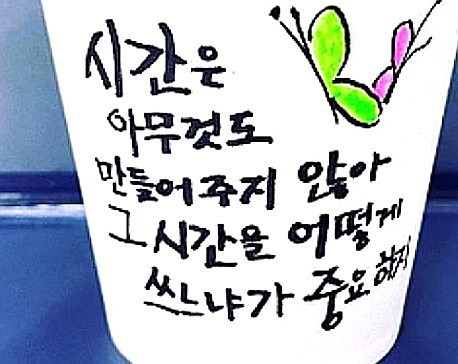 시간은
아무것도
만들어 주지 않아
그 시간을 어떻게
쓰느냐가 중요하지